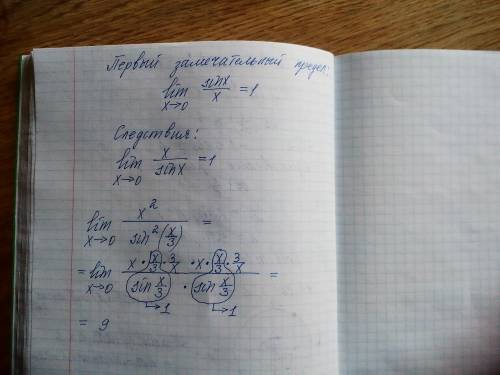 Первый замечательный предел:
lim x→0 sinx/x = 1
Следствия:
lim x→0 x/sinx = 1
lim x→0 x²/sin²(x/3) =
= lim x→0 (x · x/3 · 3/x · x · x/3 · 3/x)/(sin x/3 · sin x/3) =
→1 →1
= 9